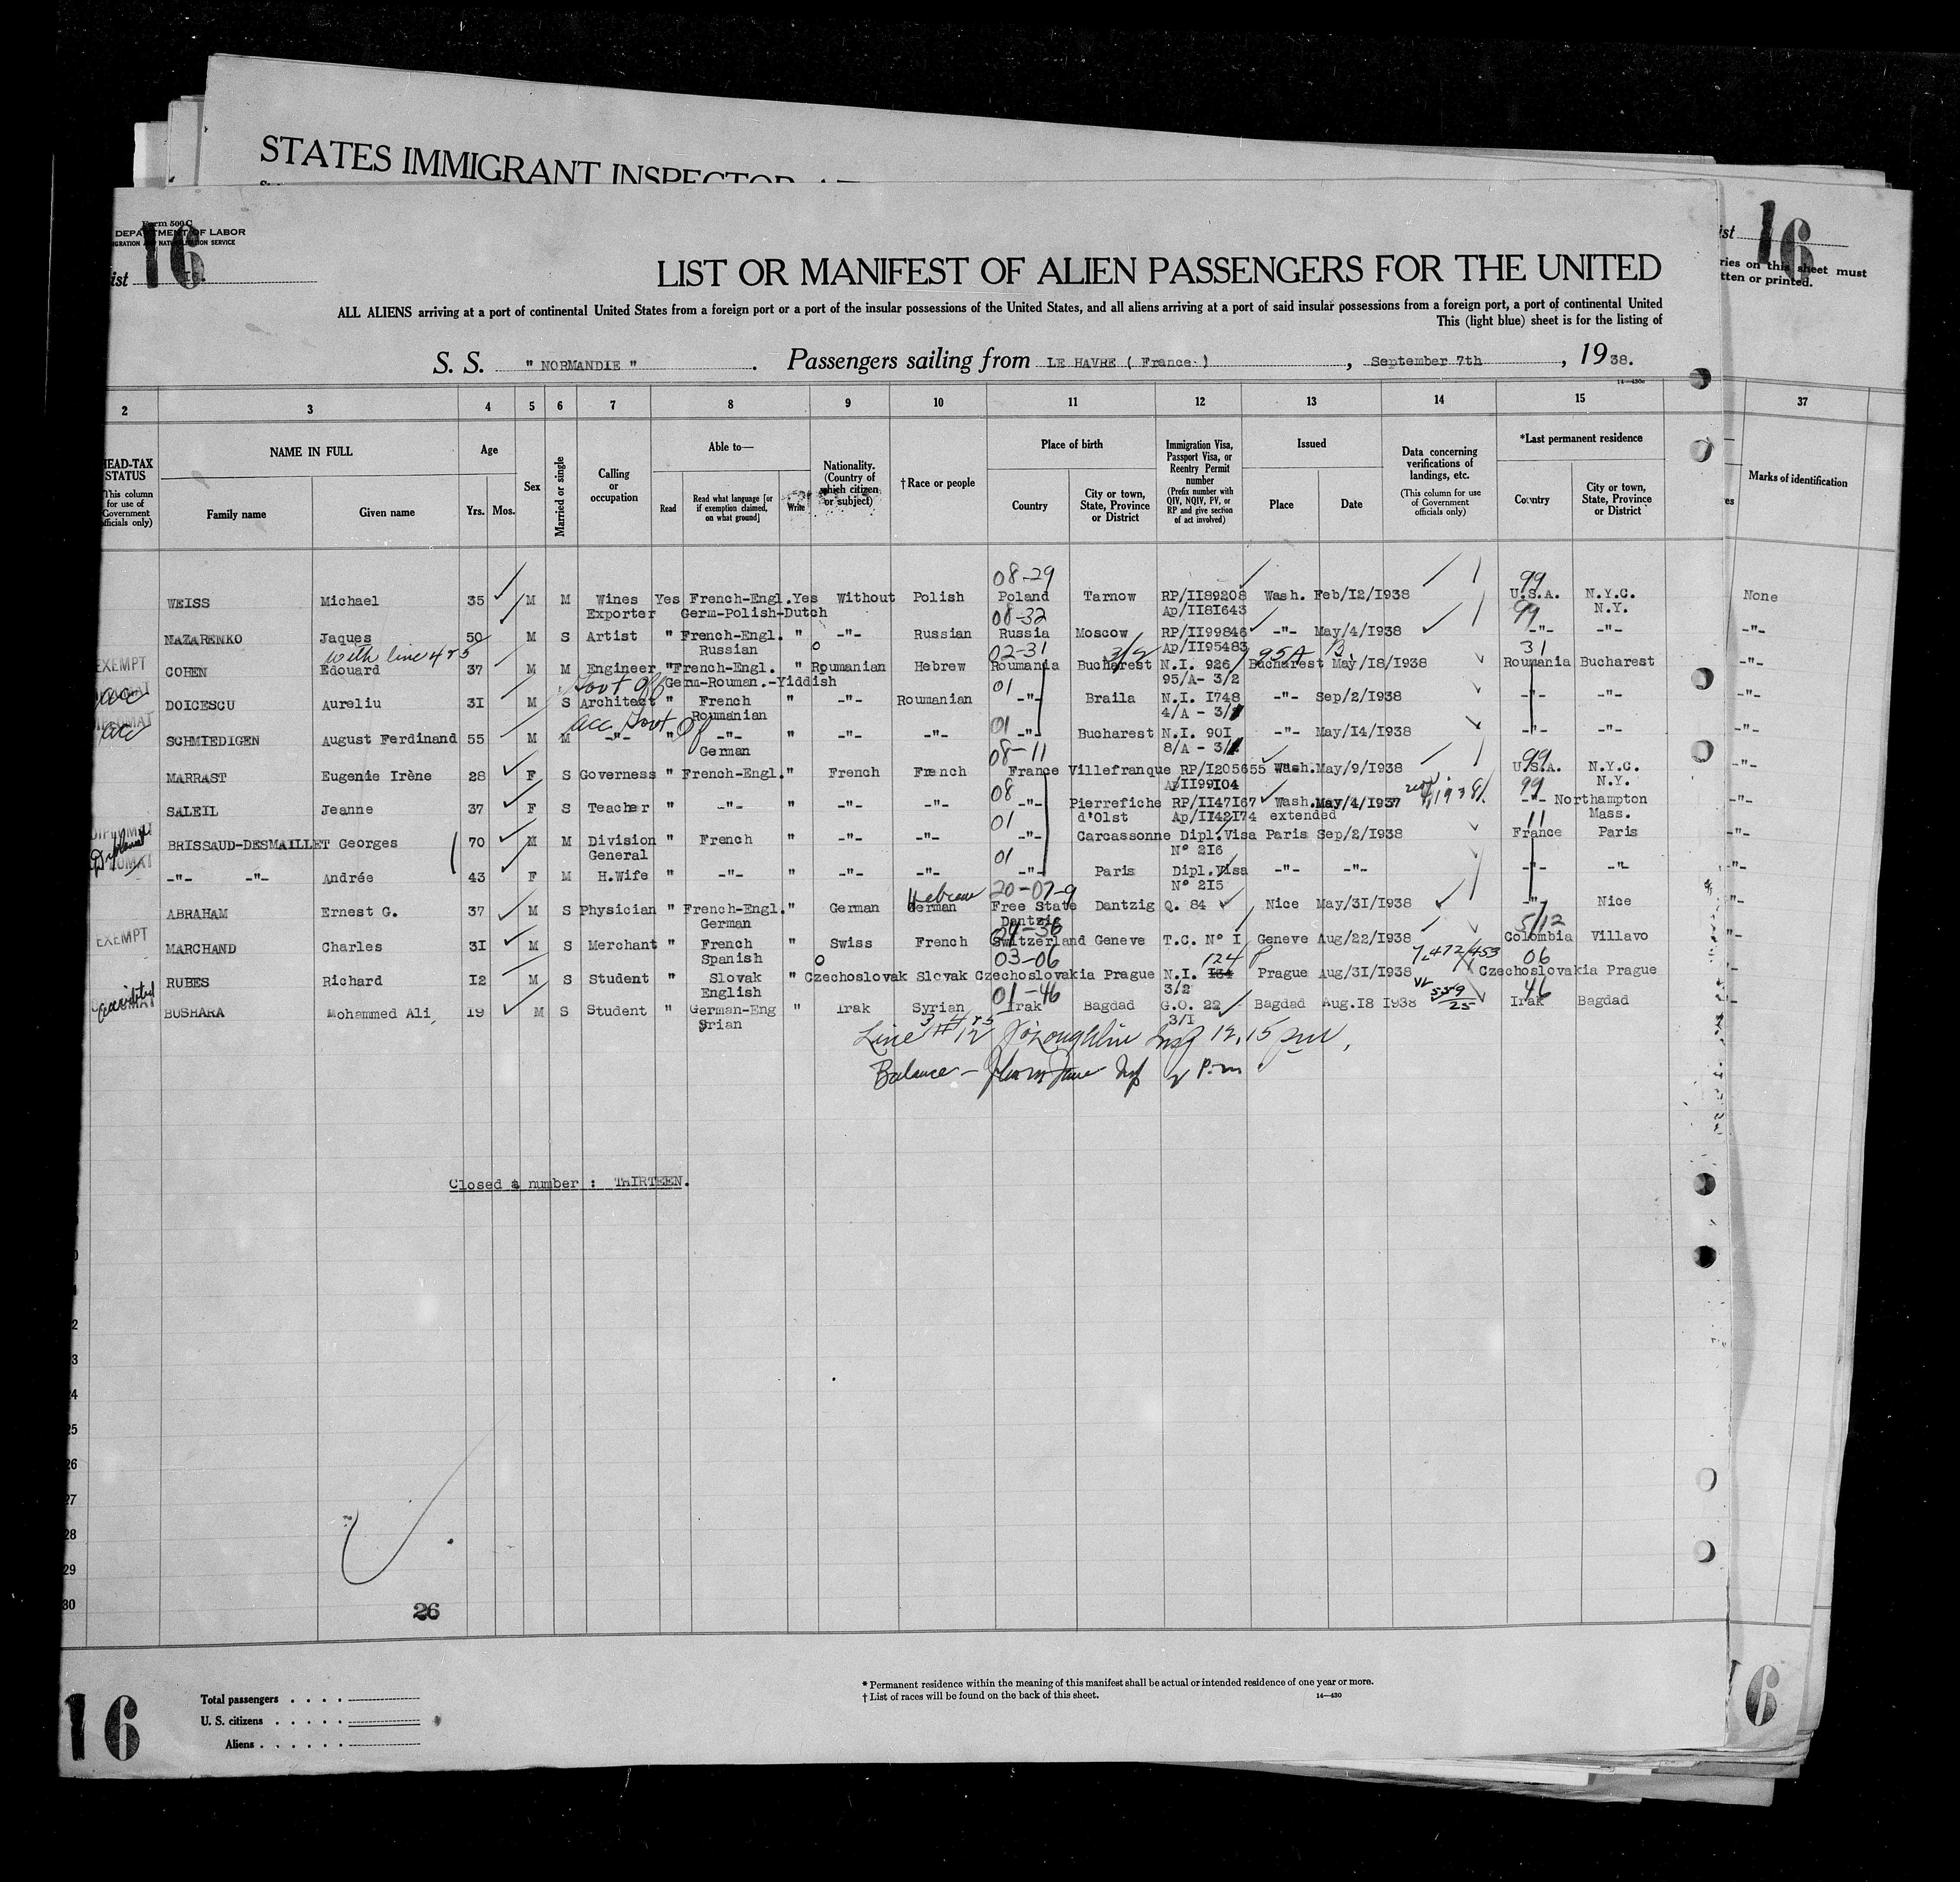 STATES IMMIGRANT INSPECTOR AT
Form 500 C
DEPARTMENT OF LABOR
IGRATION AND NATURALIZATION SERVICE
ist 16
16
ist 16
ries on this sheet must
tten or printed.
LIST OR MANIFEST OF ALIEN PASSENGERS FOR THE UNITED
ALL ALIENS arriving at a port of continental United States from a foreign port or a port of the insular possessions of the United States, and all aliens arriving at a port of said insular possessions from a foreign port, a port of continental United
This (light blue) sheet is for the listing of
S. S. " NORMANDIE " . Passengers sailing from LE HAVRE ( France ) , September 7th , 19 38.
14—430c
2 3 4 5 6 7 8 9 10 11 12 13 14 15 37
HEAD-TAX STATUS (This column for use of Government officials only)
NAME IN FULL Family name Given name
Age Yrs. Mos.
Sex
Married or single
Calling or occupation
Able to— Read Read what language [or if exemption claimed, on what ground] Write
Nationality. (Country of which citizen or subject)
†Race or people
Place of birth Country City or town, State, Province or District
Immigration Visa, Passport Visa, or Reentry Permit number (Prefix number with QIV, NQIV, PV, or RP and give section of act involved)
Issued Place Date
Data concerning verifications of landings, etc. (This column for use of Government officials only)
*Last permanent residence Country City or town, State, Province or District
Marks of identification
08-29 99
WEISS Michael 35 M M Wines Yes French-Engl. Yes Without Polish Poland Tarnow RP/II89208 Wash. Feb/I2/I938 U.S.A. N.Y.C. None
Exporter Germ-Polish-Dutch 08-32 Ap/II8I643 99 N.Y.
NAZARENKO Jaques 50 M S Artist " French-Engl. " -"- Russian Russia Moscow RP/II99846 -"- May/4/I938 -"- -"- -"-
with line 4 & 5 Russian 02-31 3/2 Ap/II95483 95A 31
EXEMPT
COHEN Edouard 37 M M Engineer " French-Engl. " Roumanian Hebrew Roumania Bucharest N.I. 926 Bucharest May/I8/I938 Roumania Bucharest -"-
Govt Off Germ-Rouman.-Yiddish 01 95/A- 3/2
acc
DOICESCU Aureliu 3I M S Architect " French " -"- Roumanian -"- Braila N.I. I748 -"- Sep/2/I938 -"- -"- -"-
acc Govt Of Roumanian 01 4/A - 3/1
DIPLOMAT
acc
SCHMIEDIGEN August Ferdinand 55 M M -"- " -"- " -"- -"- -"- Bucharest N.I. 90I -"- May/I4/I938 -"- -"- -"-
German 08-11 8/A - 3/1 99
MARRAST Eugenie Irène 28 F S Governess " French-Engl. " French French France Villefranque RP/I205655 Wash. May/9/I938 U.S.A. N.Y.C. -"-
08 Ap/II99I04 99 N.Y.
SALEIL Jeanne 37 F S Teacher " -"- " -"- -"- -"- Pierrefiche RP/II47I67 Wash. May/4/I937 -"- Northampton -"-
01 d'Olst Ap/II42I74 extended 11 Mass.
DIPLOMAT
BRISSAUD-DESMAILLET Georges 70 M M Division " French " -"- -"- -"- Carcassonne Dipl.Visa Paris Sep/2/I938 France Paris -"-
General 01 N° 2I6
-"- -"- Andrée 43 F M H.Wife " -"- " -"- -"- -"- Paris Dipl.Visa -"- -"- -"- -"- -"-
Hebrew 20-07-9 N° 2I5
ABRAHAM Ernest G. 37 M S Physician " French-Engl. " German German Free State Dantzig Q. 84 Nice May/3I/I938 -"- Nice "-
German Dantzig 5/12
EXEMPT
MARCHAND Charles 3I M S Merchant " French " Swiss French Switzerland Geneve T.C. N° I Geneve Aug/22/I938 Colombia Villavo "-
Spanish 03-06 124 06
RUBES Richard I2 M S Student " Slovak " Czechoslovak Slovak Czechoslovakia Prague N.I. I34 Prague Aug/3I/I938 Czechoslovakia Prague
English 01-46 3/2 559/25 46
BUSHARA Mohammed Ali I9 M S Student " German-Eng " Irak Syrian Irak Bagdad G.O. 22 Bagdad Aug.I8 I938 Irak Bagdad
Srian 3/I
Line # 3 4 & 5 12 J O'Loughlin Insp 12.15 pm.
Balance - Insp 2 P.m.
Closed a number : THIRTEEN.
25
26
27
28
29
30
26
16
16
Total passengers
U. S. citizens
Aliens
* Permanent residence within the meaning of this manifest shall be actual or intended residence of one year or more.
† List of races will be found on the back of this sheet.
14—430